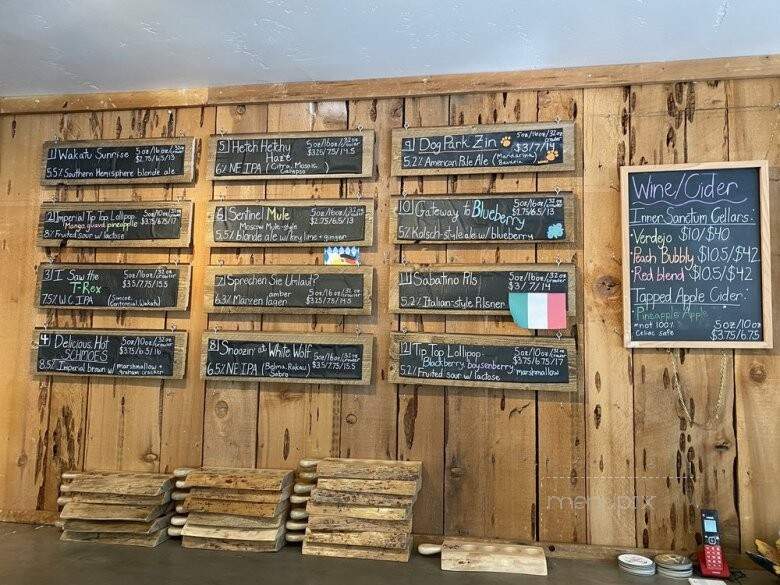 1 Wakatu Sunrise 5oz/16oz/32oz crowler
$2.75/6.5/13
5.5% Southern Hemisphere blonde ale
2 Imperial Tip Top Lollipop 5oz/10oz/32oz crowler
Mango guava pineapple $3.75/6.75/17
8% Fruited sour w/lactose
3 I Saw the 5oz/16oz/32oz crowler
T-Rex $3.75/7.5/15.5
7.5% W.C. IPA (Simcoe, Centennial, Wakatu)
4 Delicious Hot 5oz/10oz/32oz crowler
SCHMOES $3.75/6.5/16
8.5% Imperial brown w/ marshmallow + graham cracker
5 Hetch Hetchy 5oz/16oz/32oz crowler
Haze $3.25/7.5/14.5
6% NE IPA (Citra, Mosaic, Calypso)
6 Sentinel Mule 5oz/16oz/32oz crowler
Moscow Mule-style $2.75/6.5/13
5.5% blonde ale w/key lime + ginger
7 Sprechen Sie Urlauf? 5oz/16oz/32oz crowler
amber $3.25/7.5/14.5
6.3% Märzen lager
8 Snoozin' at White Wolf 5oz/16oz/32oz crowler
6.5% NE IPA (Belma, Rakau, Sabro) $3.75/7.5/15.5
9 Dog Park Zin 5oz/16oz/32oz crowler
$3/7/14
5.2% American Pale Ale (Mandarina Bavaria)
10 Gateway to Blueberry 5oz/16oz/32oz crowler
$2.75/6.5/13
5% Kolsch-style ale w/blueberry
11 Sabatino Pils 5oz/16oz/32oz crowler
$3/7/14
5.2% Italian-style Pilsner
12 Tip Top Lollipop 5oz/10oz/32oz crowler
Blackberry boysenberry $3.75/6.75/17
5.2% Fruited sour w/lactose marshmallow
Wine/Cider
Inner Sanctum Cellars:
•Verdejo $10/$40
•Peach Bubbly $10.5/$42
•Red blend $10.5/$42
Tapped Apple Cider:
Pineapple Apple
*not 100% 5oz/10oz
Celiac safe $3.75/6.75
menupix